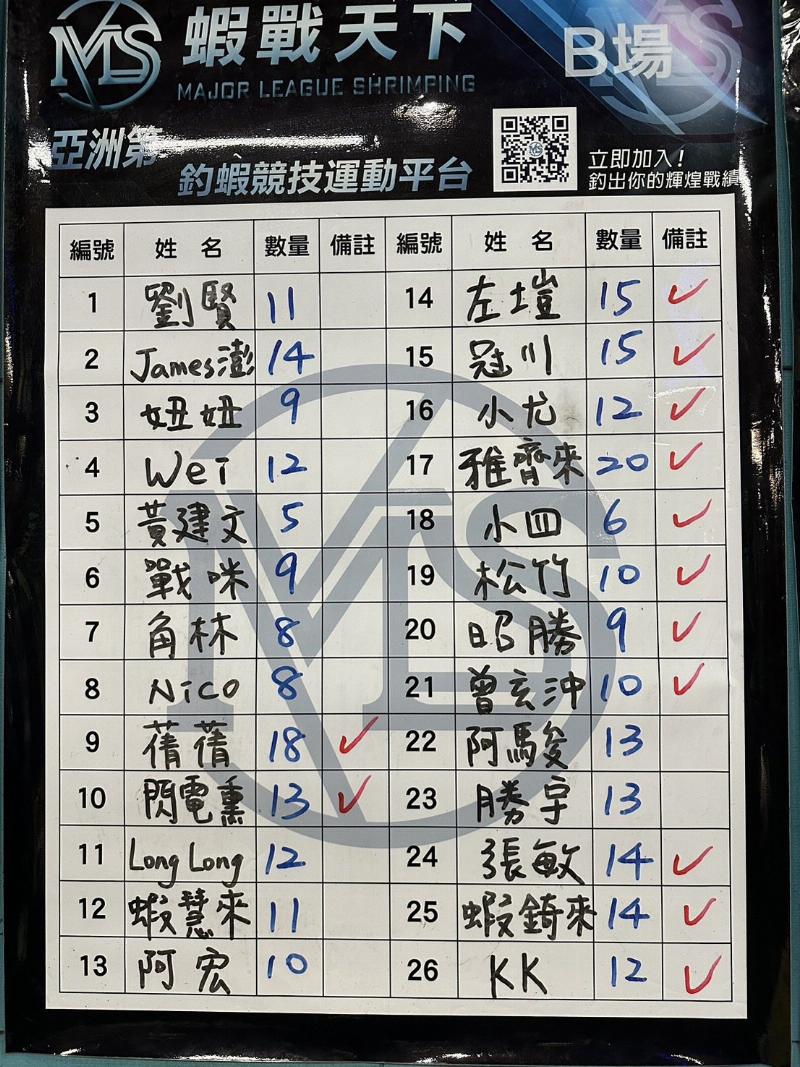 MLS 蝦戰天下 B場
MAJOR LEAGUE SHRIMPING
亞洲第
釣蝦競技運動平台
立即加入!
釣出你的輝煌戰績
編號 姓名 數量 備註 編號 姓名 數量 備註
1 劉賢 11 14 左塏 15 ✓
2 James澎 14 15 冠川 15 ✓
3 妞妞 9 16 小尤 12 ✓
4 Wei 12 17 雅齊來 20 ✓
5 黃建文 5 18 小四 6 ✓
6 戰咪 9 19 松竹 10 ✓
7 角林 8 20 昭勝 9 ✓
8 Nico 8 21 曾玄沖 10 ✓
9 蒨蒨 18 ✓ 22 阿駿 13
10 閃電熏 13 ✓ 23 勝宇 13
11 Long Long 12 24 張敏 14 ✓
12 蝦慧來 11 25 蝦錡來 14 ✓
13 阿宏 10 26 KK 12 ✓